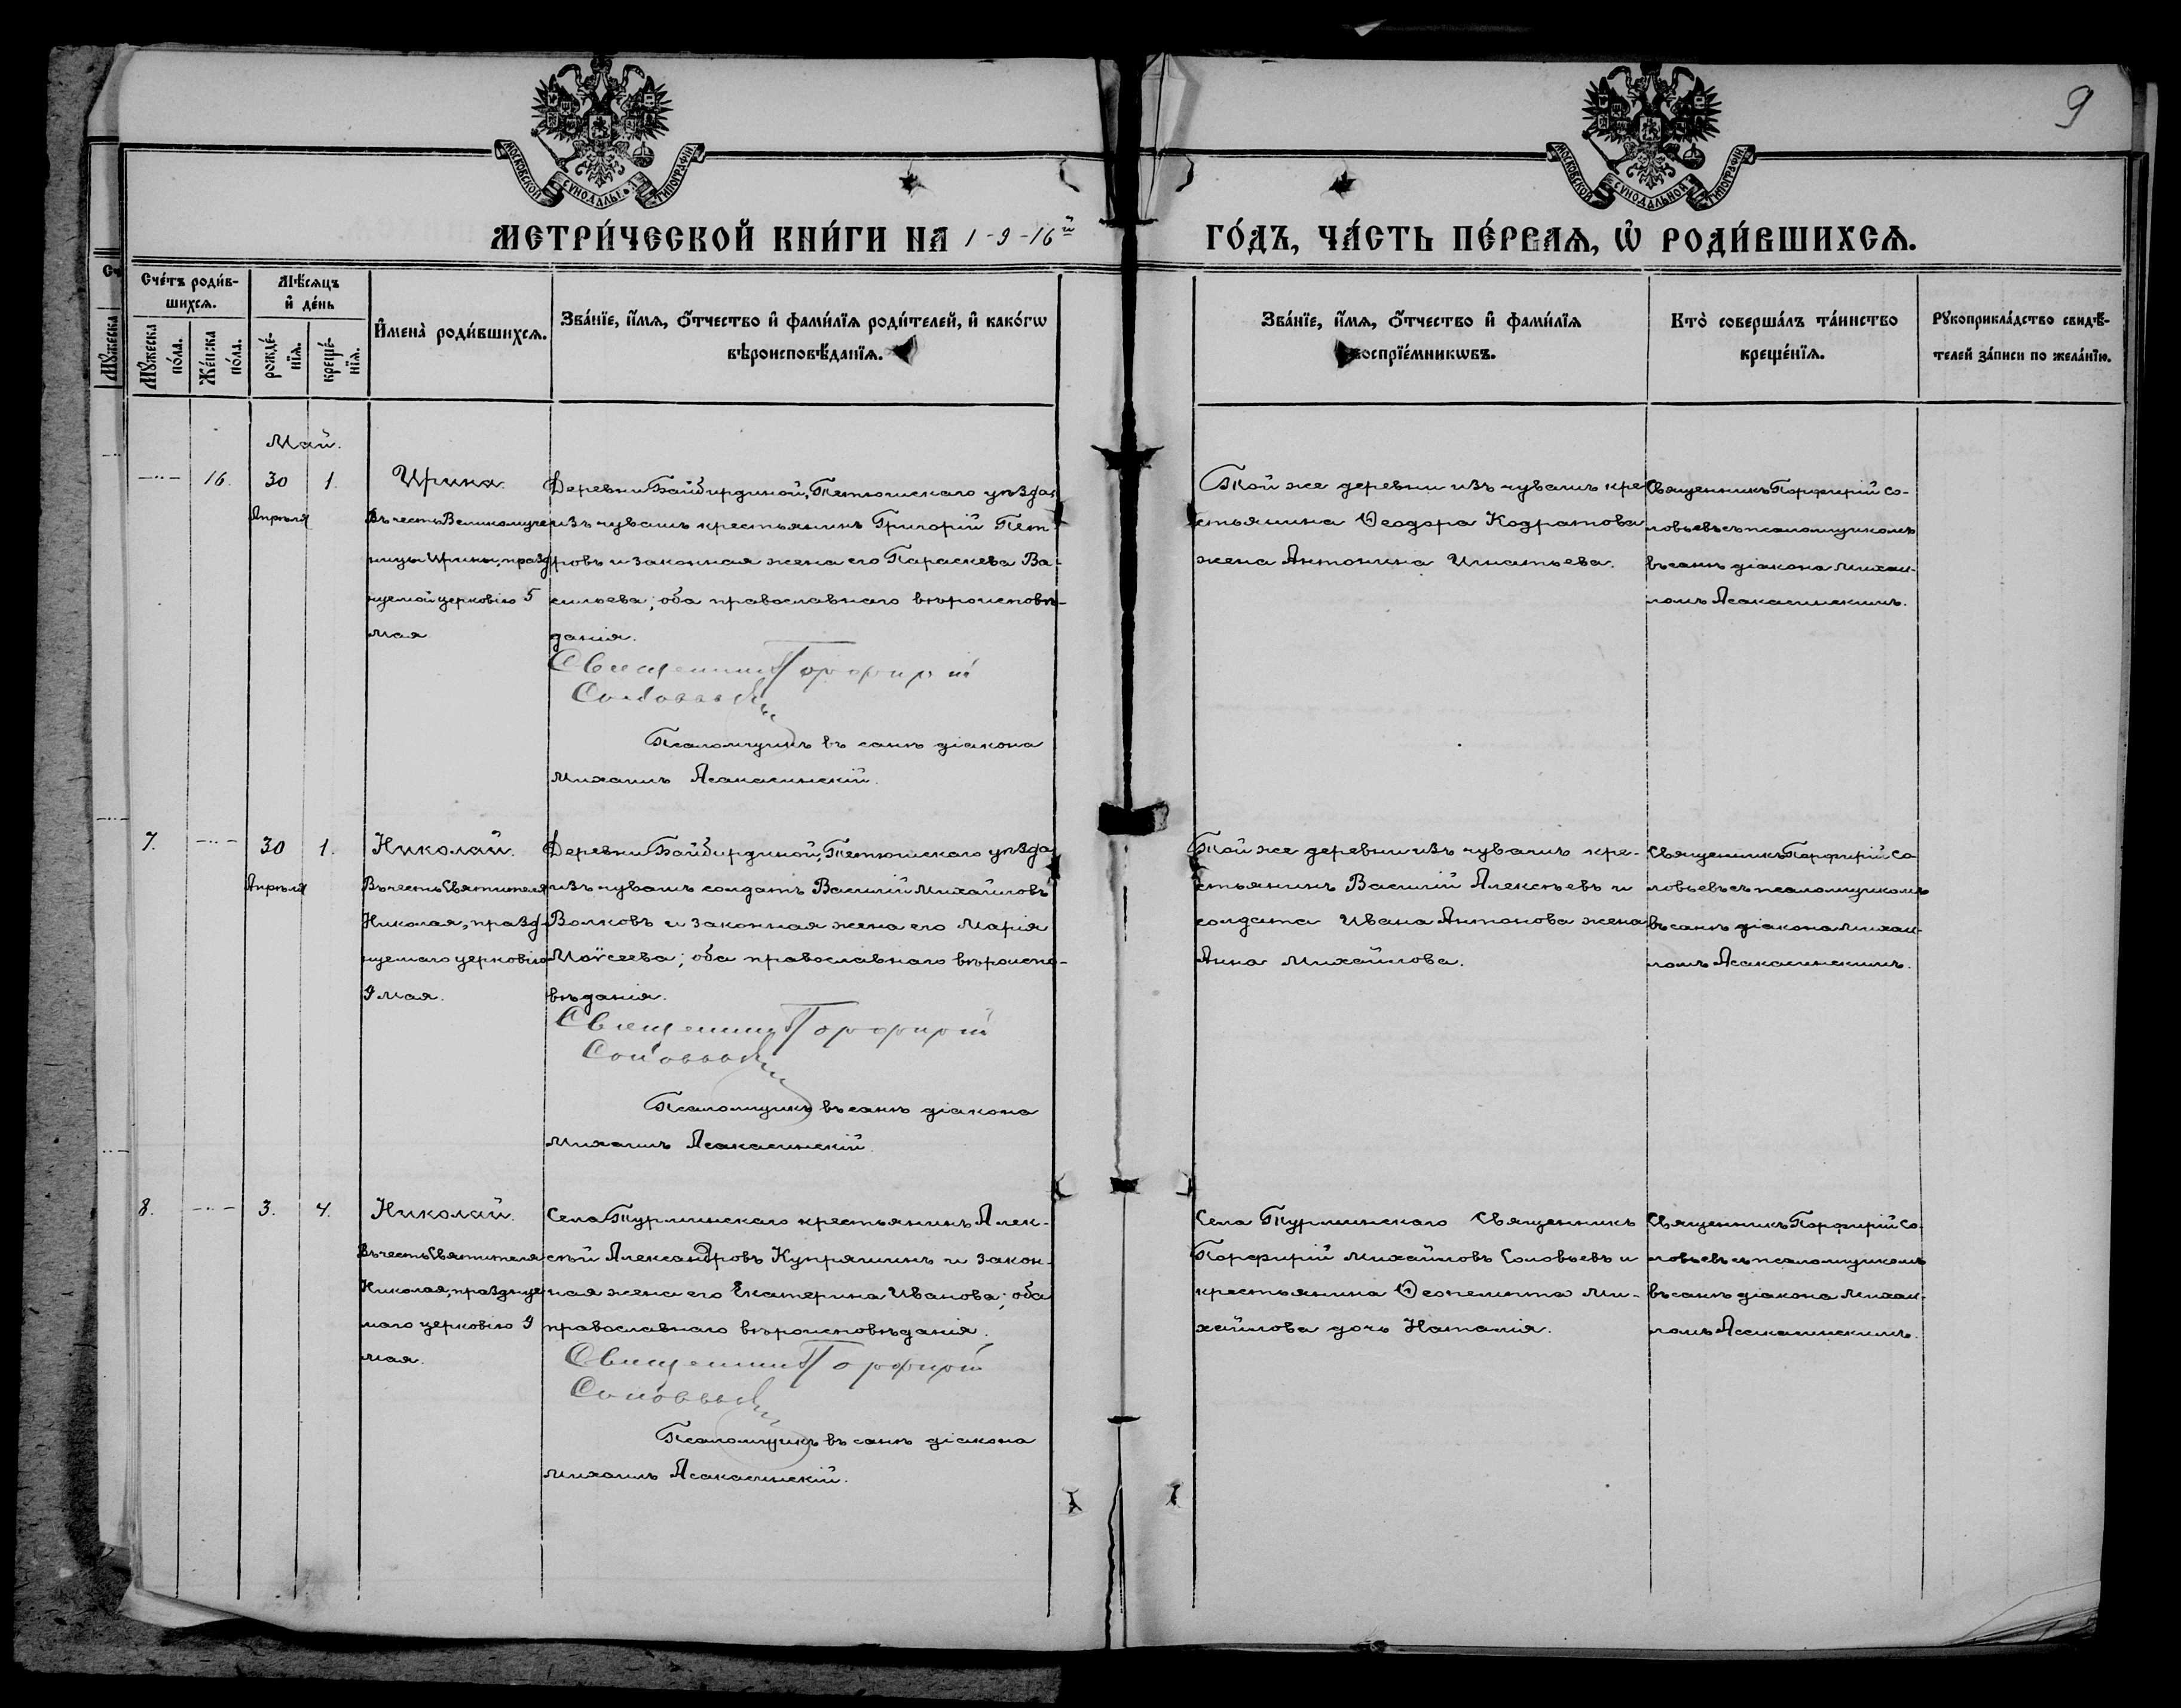 9
МОСКОВСКОЙ СУНОДАЛЬНОЙ ТИПОГРАФІИ
МОСКОВСКОЙ СУНОДАЛЬНОЙ ТИПОГРАФІИ
МЕТРИ́ЧЕСКОЙ КНИ́ГИ НА 1-9-16й ГО́ДЪ, ЧА́СТЬ ПЕ́РВАѦ, Ѡ҆ РОДИ́ВШИХСѦ.
Сче́тъ роди́в-
шихсѧ.
Мꙋжеска по́ла.
Же́нска по́ла.
Мѣ́сѧцъ
и҆ де́нь
рожде́-
нїѧ.
креще́-
нїѧ.
И҆мена̀ роди́вшихсѧ.
Зва́нїе, и҆́мѧ, ѻ҆́тчество и҆ фами́лїѧ роди́телей, и҆ како́гѡ
вѣроисповѣ́данїѧ.
Зва́нїе, и҆́мѧ, ѻ҆́тчество и҆ фами́лїѧ
воспрїе́мникѡвъ.
Кто̀ соверша́лъ та́инство
креще́нїѧ.
Рꙋкоприкла́дство свидѣ́-
телей за́писи по жела́нїю.
Май.
16.
30
Апрѣля
1.
Ирина.
Въ честь Великомуче-
ницы Ирины, празд-
нуемой церковію 5
мая.
Деревни Байбирдиной, Тетюшскаго уѣзда,
изъ чувашъ крестьянинъ Григорій Пет-
ровъ и законная жена его Параскева Ва-
сильева; оба православнаго вѣроисповѣ-
данія.
Священникъ Порфирій
Соловьевъ
Псаломщикъ въ санѣ діакона
Михаилъ Асакасинскій.
Той же деревни изъ чувашъ кре-
стьянина Ѳеодора Кодратова
жена Антонина Игнатьева.
Священникъ Порфирій Со-
ловьевъ съ псаломщикомъ
въ санѣ діакона Михаи-
ломъ Асакасинскимъ.
7.
30
Апрѣля
1.
Николай.
Въ честь Святителя
Николая, празд-
нуемаго церковію
9 мая.
Деревни Байбирдиной, Тетюшскаго уѣзда,
изъ чувашъ солдатъ Василій Михайловъ
Волковъ и законная жена его Марія
Моѵсеева; оба православнаго вѣроиспо-
вѣданія.
Священникъ Порфирій
Соловьевъ
Псаломщикъ въ санѣ діакона
Михаилъ Асакасинскій
Той же деревни изъ чувашъ кре-
стьянинъ Василій Алексѣевъ и
солдата Ивана Антонова жена
Анна Михайлова.
Священникъ Порфирій Со-
ловьевъ съ псаломщикомъ
въ санѣ діакона Михаи-
ломъ Асакасинскимъ.
8.
3.
4.
Николай.
Въ честь Святителя
Николая, празднуе-
маго церковію 9
мая.
Села Турминскаго крестьянинъ Алек-
сѣй Александровъ Купряшинъ и закон-
ная жена его Екатерина Иванова; оба
православнаго вѣроисповѣданія.
Священникъ Порфирій
Соловьевъ
Псаломщикъ въ санѣ діакона
Михаилъ Асакасинскій.
Села Турминскаго Священникъ
Порфирій Михайловъ Соловьевъ и
крестьянина Ѳеопемпта Ми-
хайлова дочь Наталія.
Священникъ Порфирій Со-
ловьевъ съ псаломщикомъ
въ санѣ діакона Михаи-
ломъ Асакасинскимъ.